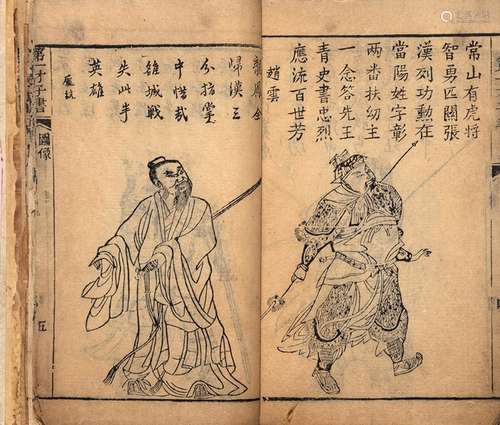 常山有虎將
智勇匹關張
漢列功勳在
當陽姓字彰
兩番扶幼主
一念答先王
青史書忠烈
應流百世芳
趙雲
歸漢三
分指掌
中惜哉
雒城戰
失此半
英雄
龐統
第一才子書
圖像
五